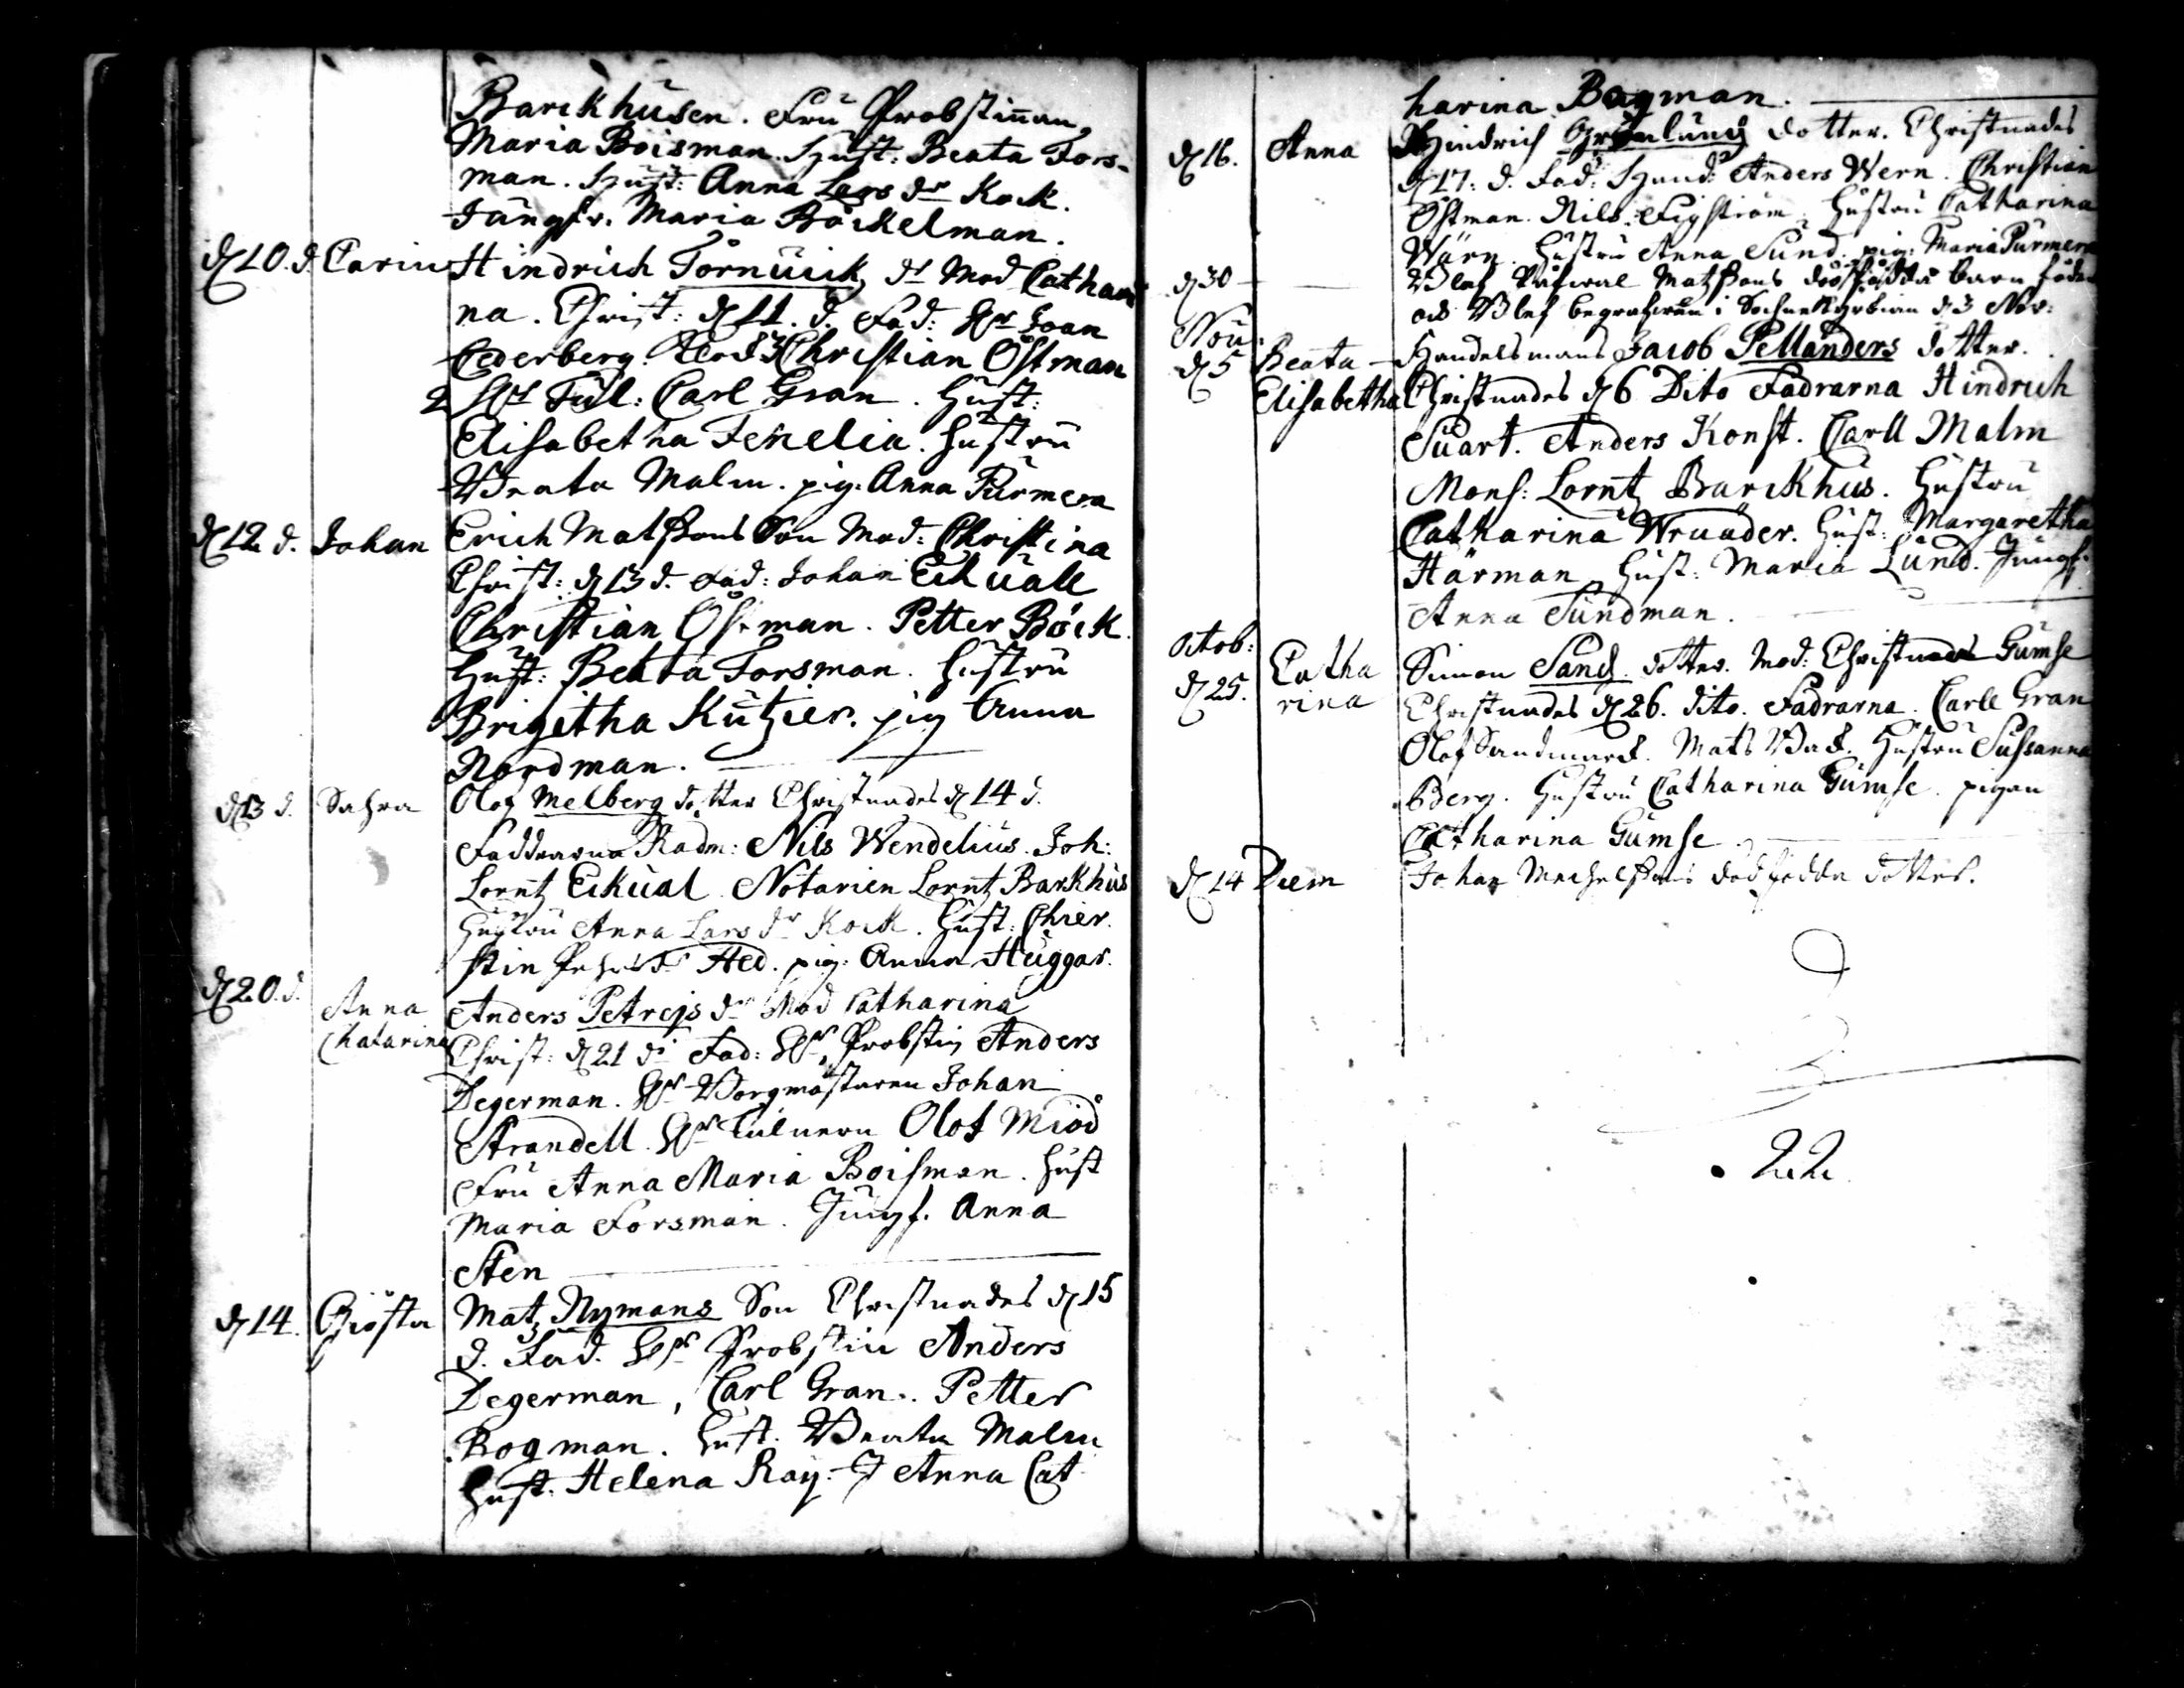 Barckhusen. Fru Probstinnan
Maria Boisman. Hust: Beata Fors-
man. Hust: Anna Lars dr Kock.
Jungfr. Maria Böckelman.
d 10. d. Carin Hindrich Törnuick dr Mod Cathari
na. Christ: d 11. d. Fad: Hr Joan
Cederberg. Christian Östman
Hr Tul: Carl Gran. Hust:
Elisabetha Fenelia. Hustru
Beata Malm. pig. Anna Purmera
d 12 d. Johan Erich Matssons Son Mod: Christina
Christ: d 13 d. Fad: Johan Eckuall
Christian Östman. Petter Böck.
Hust: Beata Forsman. Hustru
Brigitha Kutzier. pig Anna
Nordman.
d 13 d. Sahra Olof Melberg dotter Christnades d 14 d.
Faddrarna Radm: Nils Wendelius. Joh:
Lorntz Eckual. Notarien Lorntz Barkhus
Hustru Anna Lars dr Kock. Hust: Chier
stin Pehrs dr Hed. pig: Anna Huggar.
d 20. d. Anna Chatarina Anders Petrejs dr Mod Catharina
Christ: d 21 d. Fad: Hr Probstin Anders
Degerman. Hr Borgmästaren Johan
Strandell. Hr Tulnern Olof Miöd
Fru Anna Maria Boisman. Hust
Maria Forsman. Jungf. Anna
Sten
d 14. Giösta Matz Nymans Son Christnades d 15
d. Fad. Hr Probstin Anders
Degerman, Carl Gran. Petter
Bogman. Hust. Beata Malm
Hust. Helena Ray. J Anna Cat
harina Bagman.
d 16. Anna Hindrich Grönlund dotter. Christnades
d 17. d. Fad: Hand: Anders Wern. Christian
Östman. Nils Figström Hustru Catharina
Wärn. Hustru Anna Sund. pig: Maria Purmera
d 30 Blef Matssons barn
och Blef begrafwen i Sochnekyrkian d 3 Nov:
Nou:
d 5 Beata Handelsmans Jacob Pellanders dotter.
Elisabetha Christnades d 6 Dito Fadrarna Hindrich
Suart. Anders Konst. Carll Malm
Mons: Lorntz Barckhus. Hustru
Catharina Wruader. Hust: Margaretha
Härman Hust: Maria Lund. Jungf:
Anna Sundman.
Octob:
d 25. Catha rina Simon Sand dotter. Mod: Christina Gumse
Christnades d 26. dito. Fadrarna. Carll Gran
Olof Sandmark. Mats Back. Hustru Sussanna
Berg. Hustru Catharina Gumse. pigan
Catharina Gumse
d 14 Decem Johan Mechelssons dödfödda dotter.
22